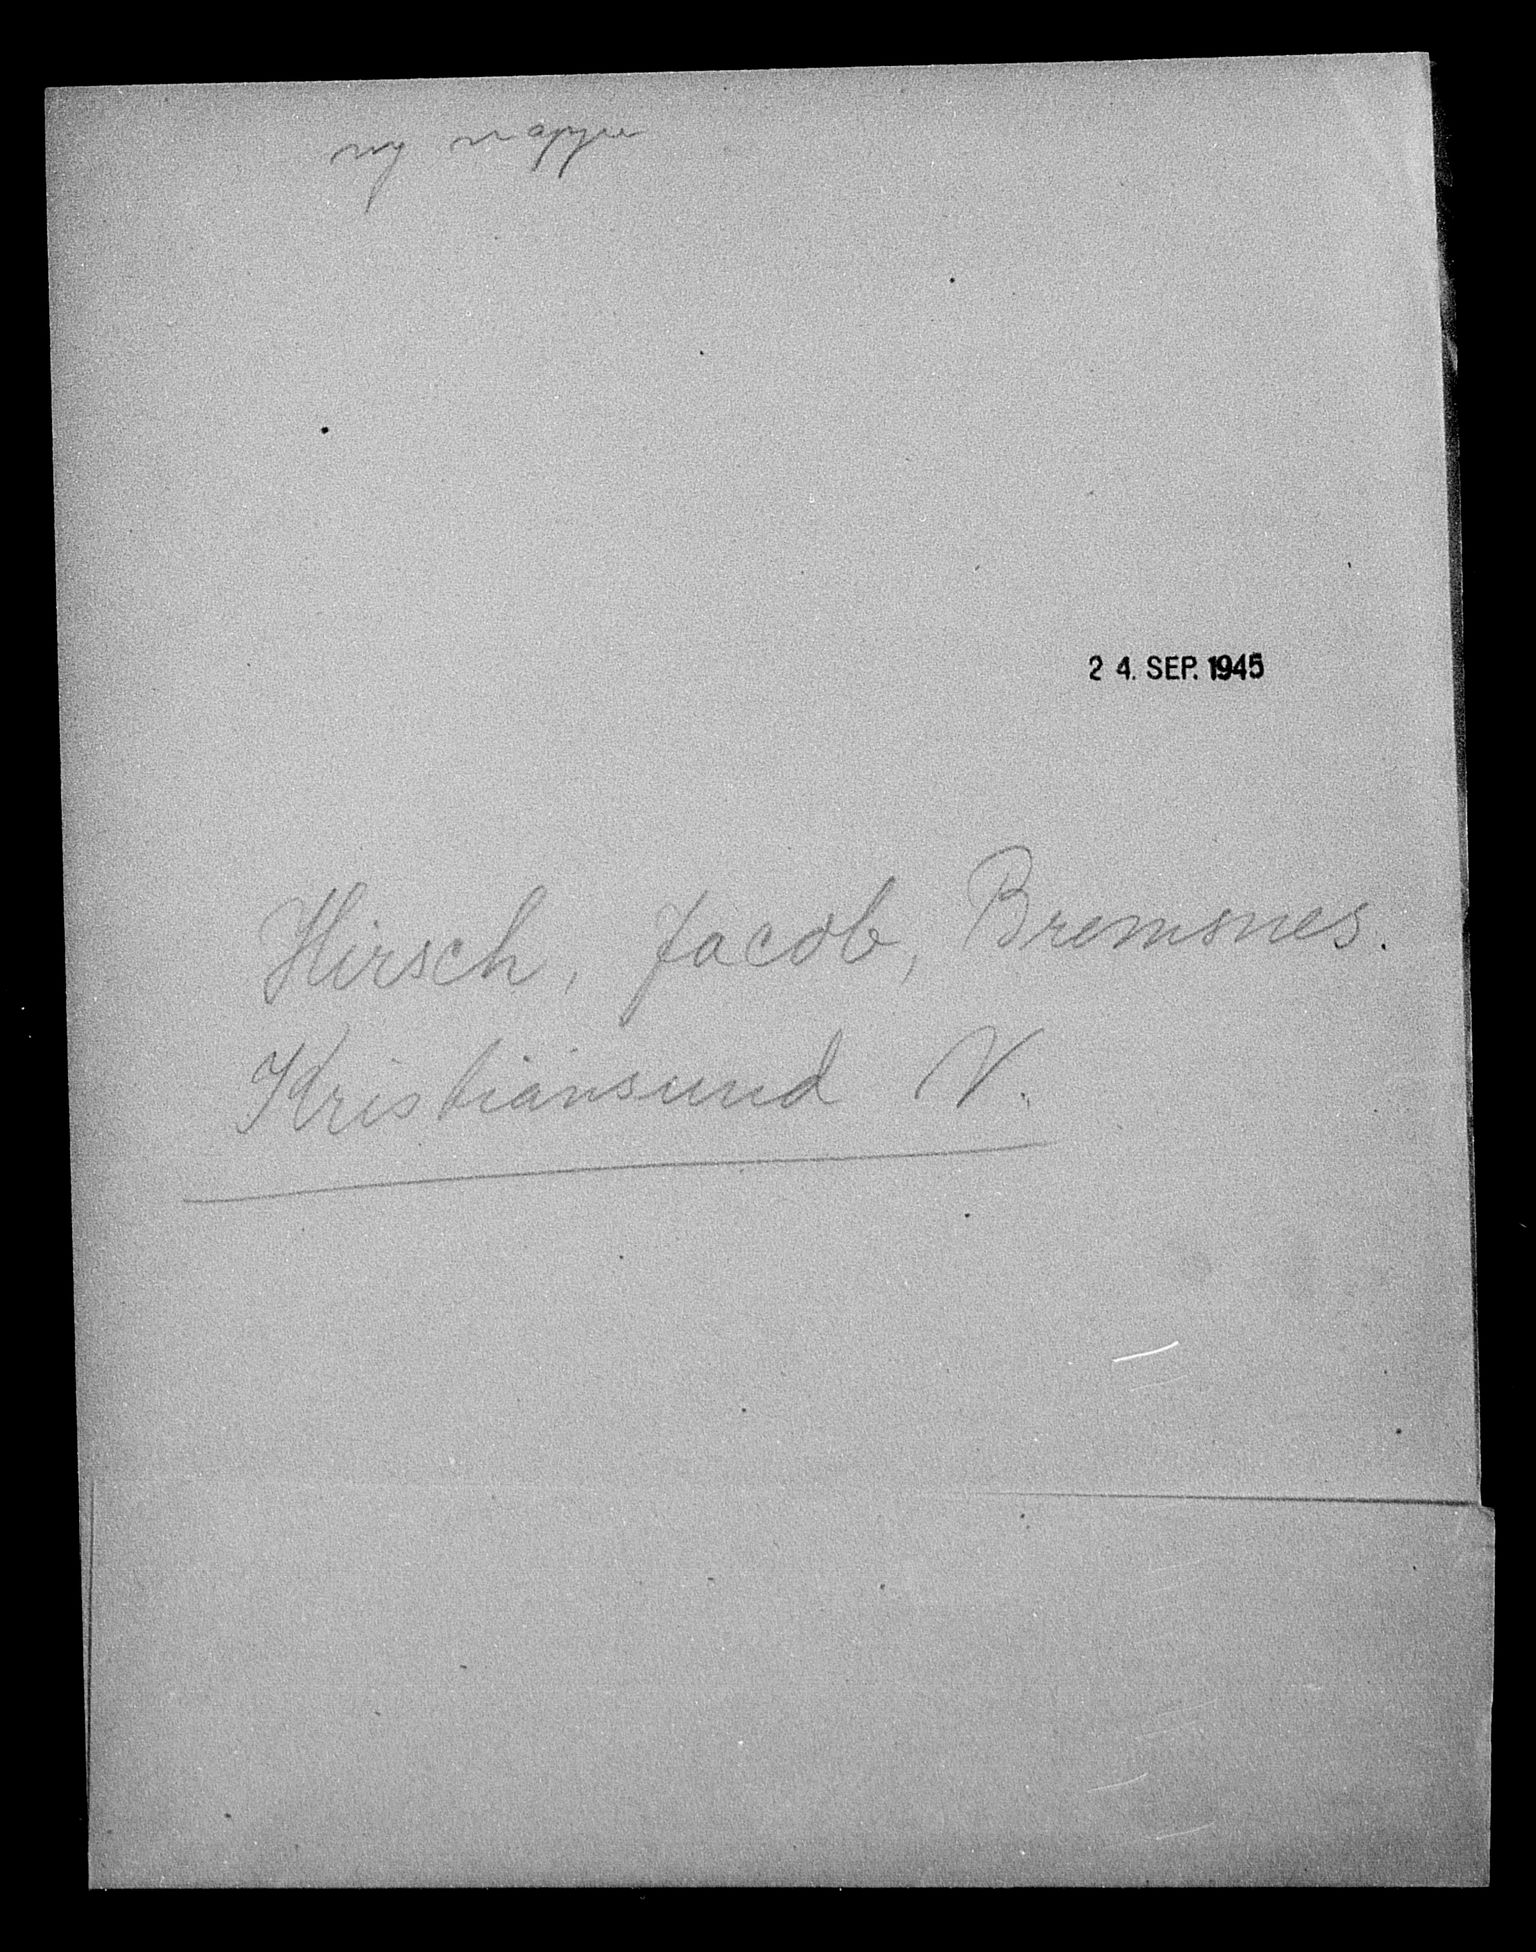 ny mappe
2 4. SEP. 1945
Hirsch, Jacob, Bremsnes.
Kristiansund N.